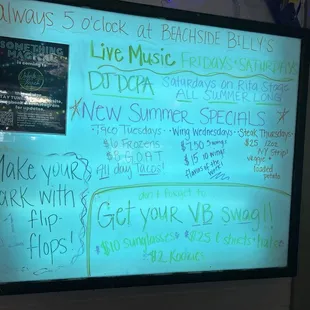 always 5 o'clock at BEACHSIDE BILLY'S
SOMETHING
MAGICAL
Live Music FRIDAYS & SATURDAYS
DJ DCPA Saturdays on Rita Stage
ALL SUMMER LONG
*New Summer SPECIALS*
Taco Tuesdays- -Wing Wednesdays- -Steak Thursdays-
$6 Frozens
$8 GOAT
All day Tacos!
$7.50 5 wings
$15 10 wings
flavors of the week!
$25 12oz.
NY Strip!
veggie +
loaded
potato
Make your
ark with
flip-
flops!
don't forget to
Get your VB swag!!
$10 sunglasses $25 t-shirts + hats
$2 Koozies